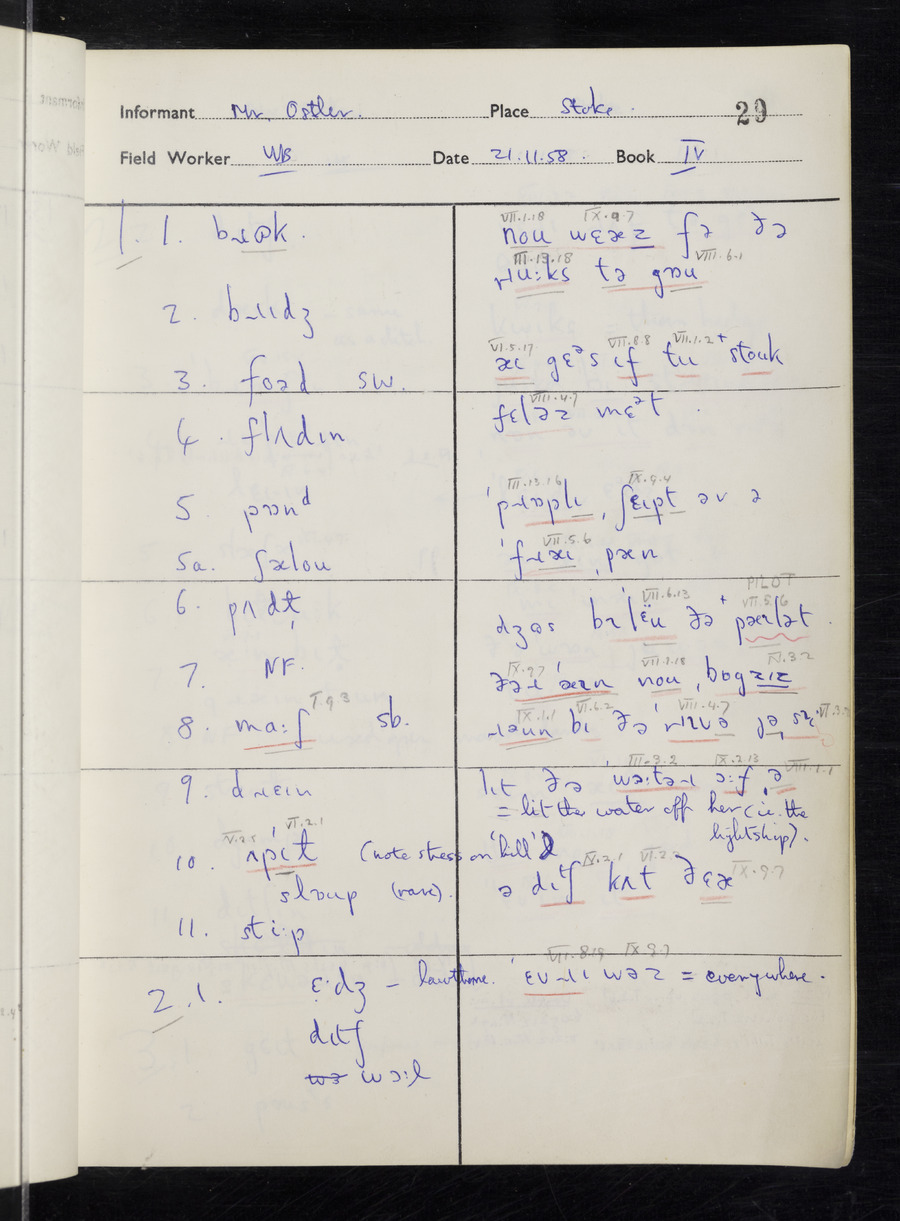 Informant Mr. Ostler. Place Stoke. 29
Field Worker WB Date 21.11.58. Book IV
1. 1. bɹʊk.
2. bɹɪdʒ
3. foəd sw.
4. flʌdɪn
5. pɒnd
5a. ʃælou
6. pʌdɫ̩
7. NF.
8. ma:ʃ V.9.3 sb.
9. dɹɛɪn
10. ʌpɪɫ IV.2.5 VI.2.1 (note stress on 'hill')
slɒup (rare).
11. sti:p
2.1. ɛ:dʒ – hawthorne.
dɪtʃ
wɔ:l
VII.1.18 IX.9.7
nou wɛəz fə ðə
III.13.18 VIII.6.1
ɹu:ks tə gɒu
VI.5.17 VII.8.8 VII.1.2
gɛəs ɪf tu stouk
VIII.4.7
fɛləz mɛət
III.13.16 IX.9.4
ʃɛɪpt əv ə
VII.5.6
pæn
PILOT
VII.6.13 VII.5.6
dʒʊs ðə
IX.9.7 VII.1.18 IV.3.2
nou
IX.1.1 VI.6.2 VIII.4.7
ɹəun bɪ ðə
III.3.2 IX.2.13 VIII.1.1
lɪt ðə wɔ:təɹ ɔ:f ə
= lit the water off her (i.e. the
lightship).
IV.2.1 VI.2.2 IX.9.7
ə dɪtʃ kʌt ðɛə
VII.8.19 IX.9.7
ɛvɹɪwəz = everywhere.